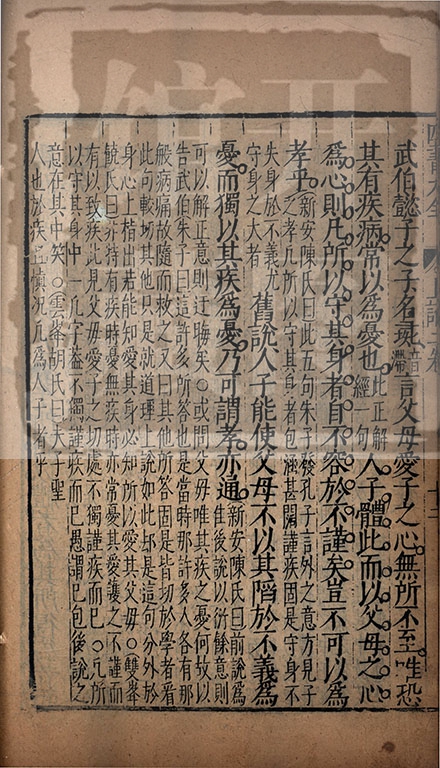 武伯懿子之子名彘音滯言父母愛子之心無所不至唯恐
其有疾病常以爲憂也此正解經一句人子體此而以父母之心
爲心則凡所以守其身者自不容於不謹矣豈不可以爲
孝乎新安陳氏曰此五句朱子發孔子言外之意方見子
之孝凡所以守其身者包涵甚闊謹疾固是守身不
失身於不義尤
守身之大者舊說人子能使父母不以其陷於不義爲
憂而獨以其疾爲憂乃可謂孝亦通新安陳氏曰前說爲
佳後說以衍餘意則
可以解正意則迂晦矣○或問父母唯其疾之憂何故以
告武伯朱子曰這許多所答也是當時那許多人各有那
般病痛故隨而救之又曰其他所答固是皆切於學者看
此句較切其他只是就道理上說如此却是這句分外於
身心上指出若能知愛其身必知所以愛其父母○雙峯
饒氏曰非特有疾時憂無疾時亦常憂其愛護之不謹而
有以致疾此見父母愛子之切處不獨謹疾而已○凡所
以守其身中一凡字蓋不獨謹疾而已愚謂已包後說之
意在其中矣○雲峯胡氏曰夫子聖
人也於疾且慎況凡爲人子者乎